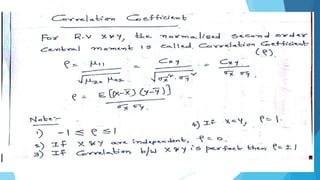 Correlation Coefficient
For R.V X & Y, the normalised second order
central moment is called Correlation Coefficient
(ρ).
ρ = μ11 / √μ20 μ02 = CXY / √σx² · σy² = CXY / σx σy
ρ = E[(X-X̄)(Y-Ȳ)] / σx σy.
Note:-
4) If X=Y, ρ=1.
1) -1 ≤ ρ ≤ 1
2) If X & Y are independent, ρ=0.
3) If Correlation b/w X & Y is perfect then ρ=±1